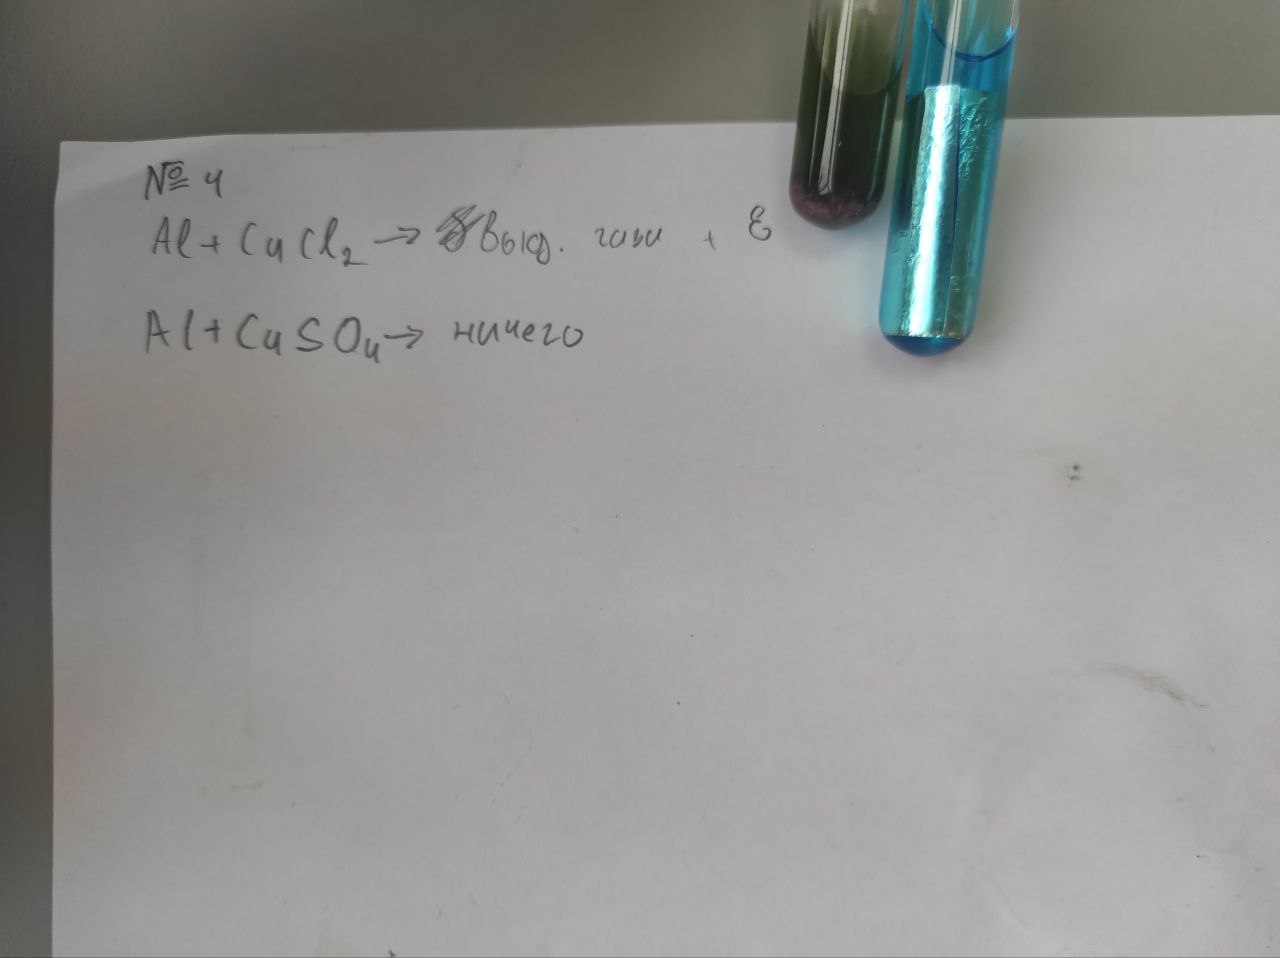 № 4
Al + CuCl2 → выд. газа + E
Al + CuSO4 → ничего